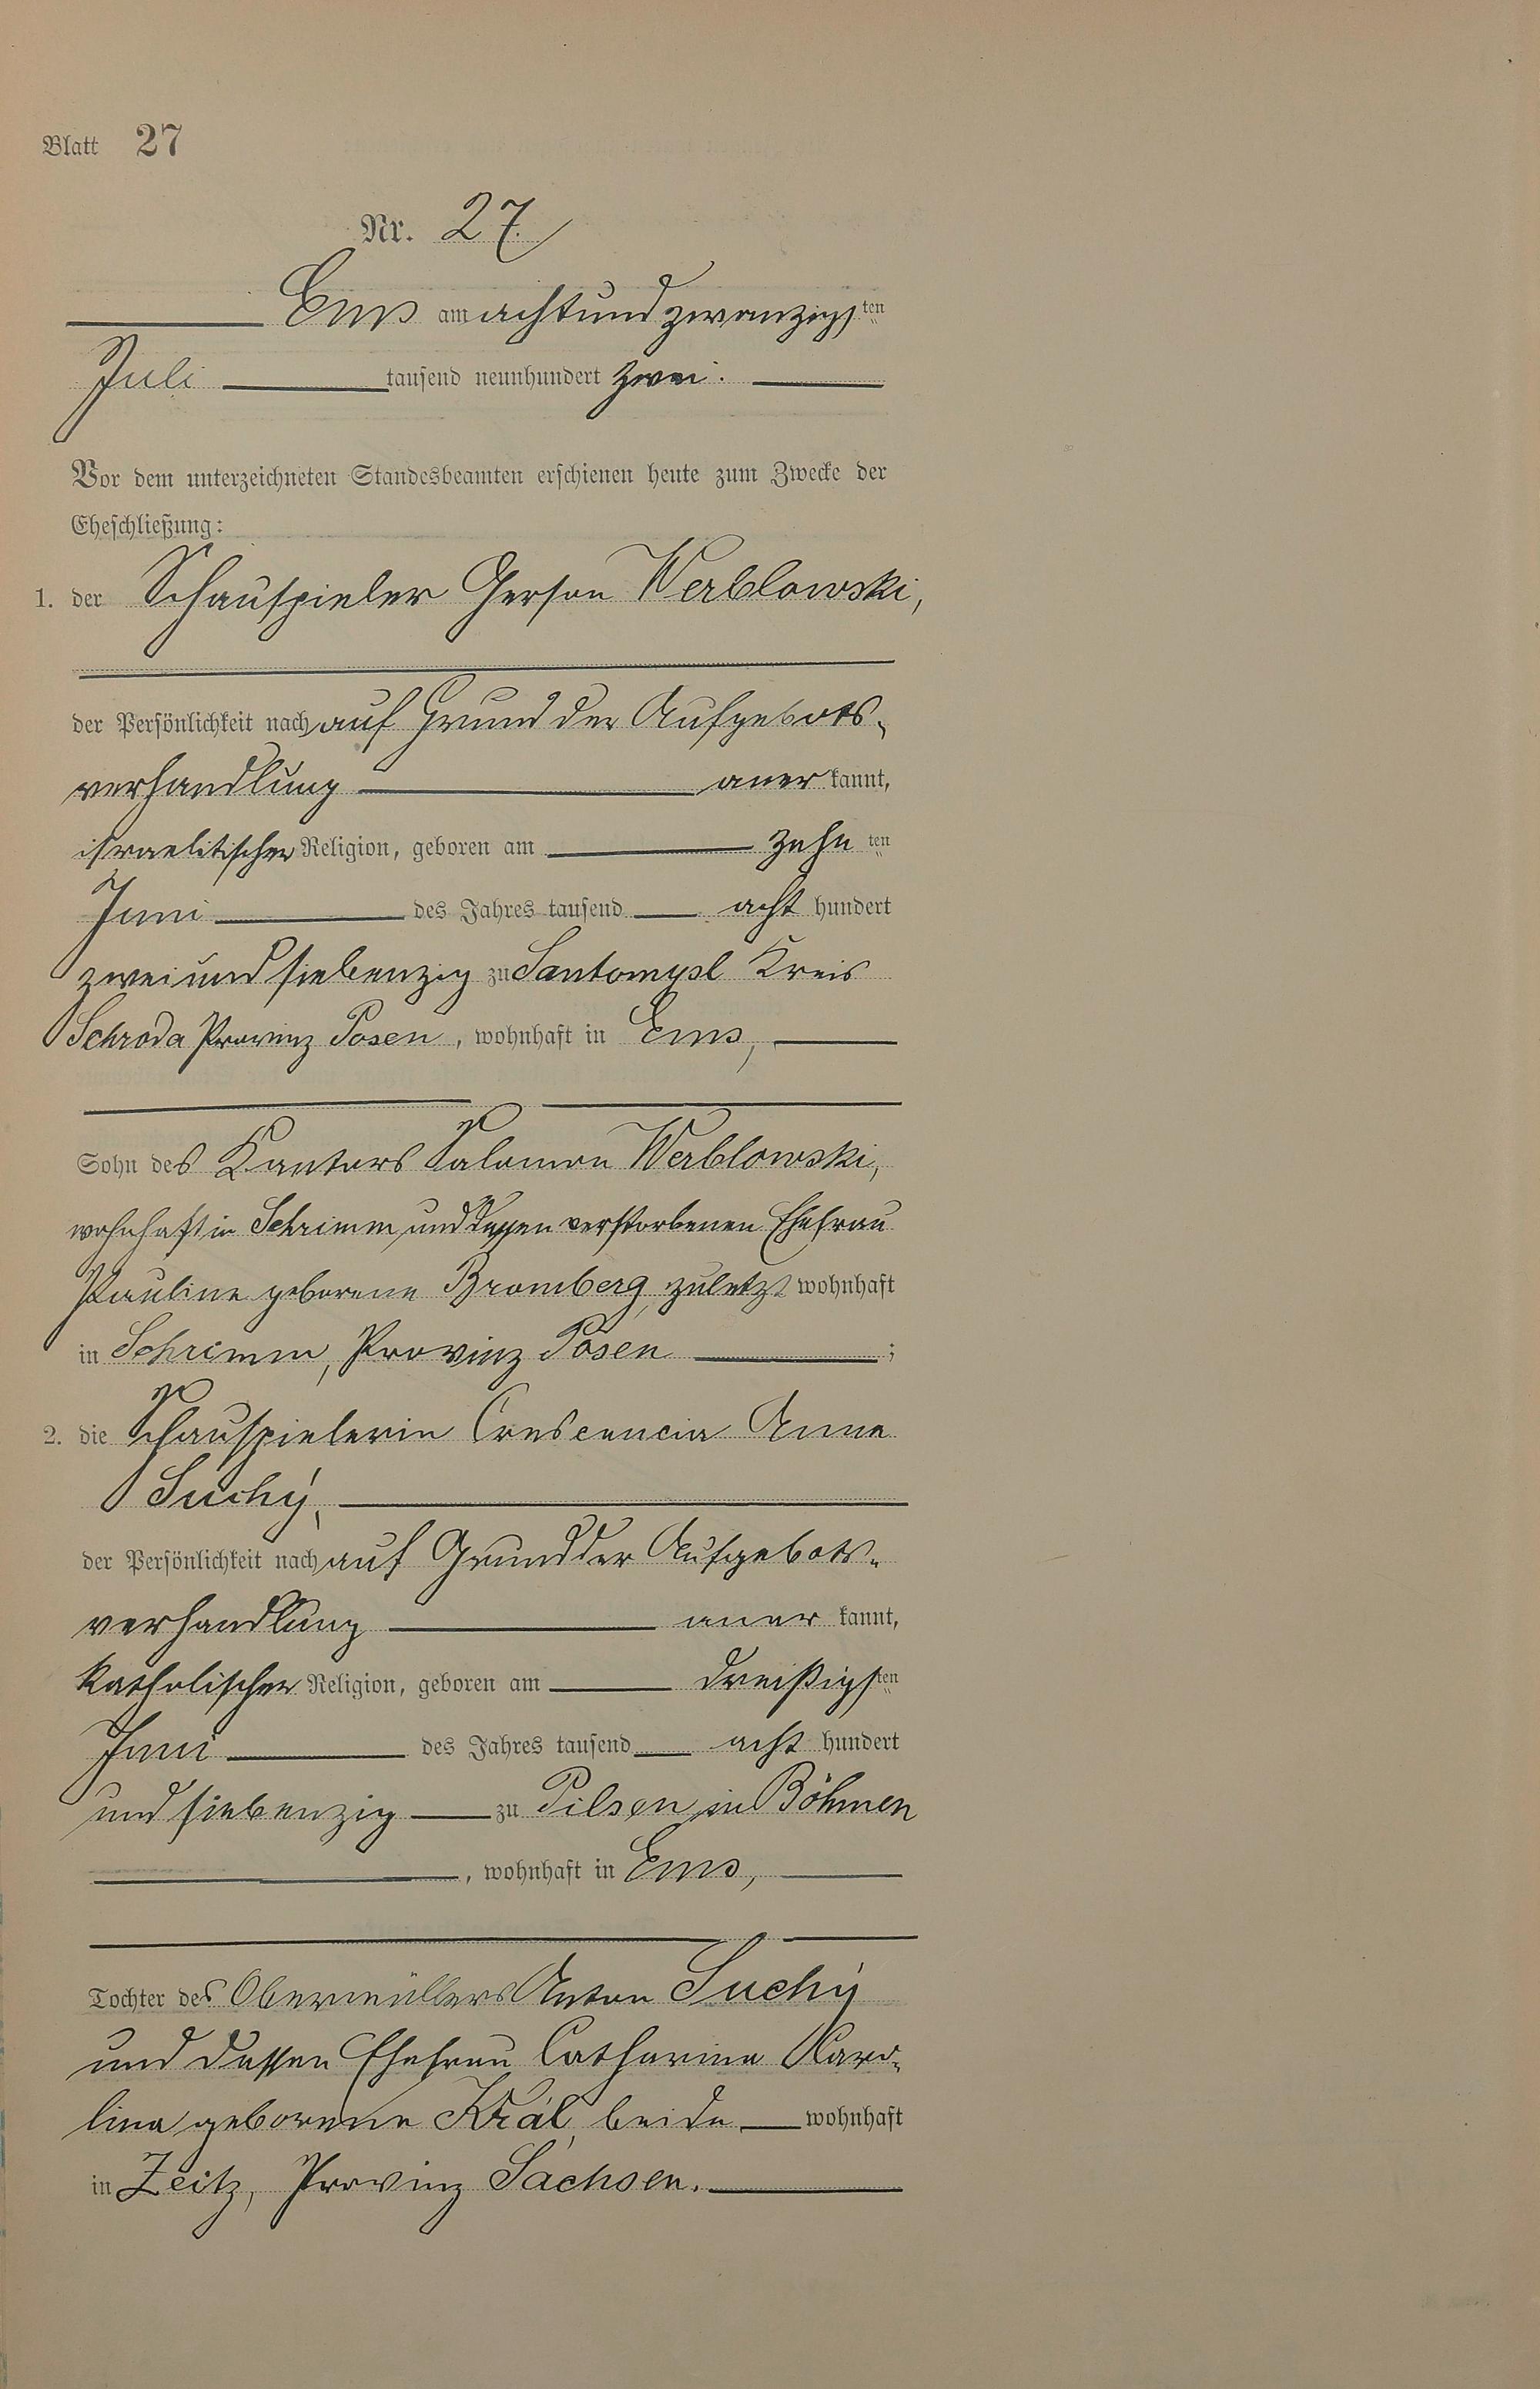 Blatt 27
Nr. 27.
Ems am achtundzwanzigsten
Juli tausend neunhundert zwei.
Vor dem unterzeichneten Standesbeamten erschienen heute zum Zwecke der
Eheschließung:
1. der Schauspieler Gerson Werblowski,
der Persönlichkeit nach auf Grund der Aufgebots-
verhandlung anerkannt,
israelitischer Religion, geboren am zehnten
Juni des Jahres tausend acht hundert
zweiundsiebenzig zu Santomysl Kreis
Schroda Provinz Posen, wohnhaft in Ems,
Sohn des Kantors Salomon Werblowski,
wohnhaft in Schrimm, und dessen verstorbenen Ehefrau
Pauline geborene Bromberg, zuletzt wohnhaft
in Schrimm, Provinz Posen;
2. die Schauspielerin Crescencia Anna
Suchý,
der Persönlichkeit nach auf Grund der Aufgebots-
verhandlung anerkannt,
katholischer Religion, geboren am dreißigsten
Juni des Jahres tausend acht hundert
und siebenzig zu Pilsen in Böhmen
, wohnhaft in Ems,
Tochter des Obermüllers Anton Suchý
und dessen Ehefrau Catharina Karo-
lina geborene Král, beide wohnhaft
in Zeitz, Provinz Sachsen.